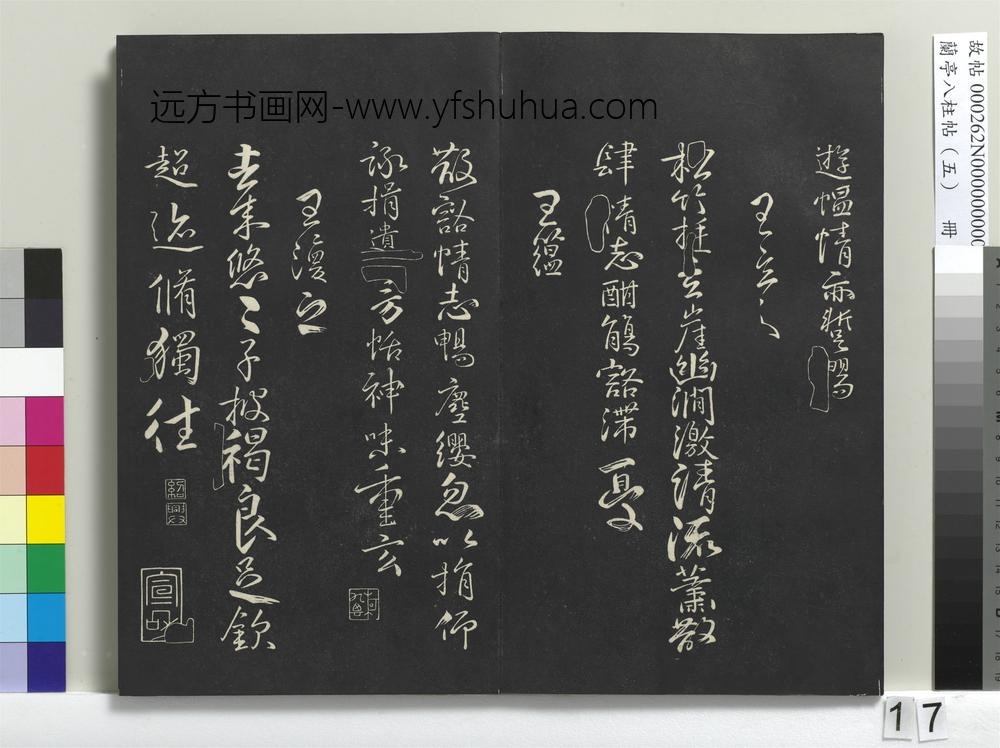 远方书画网-www.yfshuhua.com
遊 情亦蹔暢
王玄之
松竹挺 崖幽澗激清流蕭散
肆情志酣觴豁滯憂
王蘊
散豁情志暢塵纓忽以捐仰
詠 遺芳怡神味重玄
王渙之
去來悠悠子披褐良足欽
超迹脩獨往
紹興
故帖 000262N000000000
蘭亭八柱帖（五） 冊
17